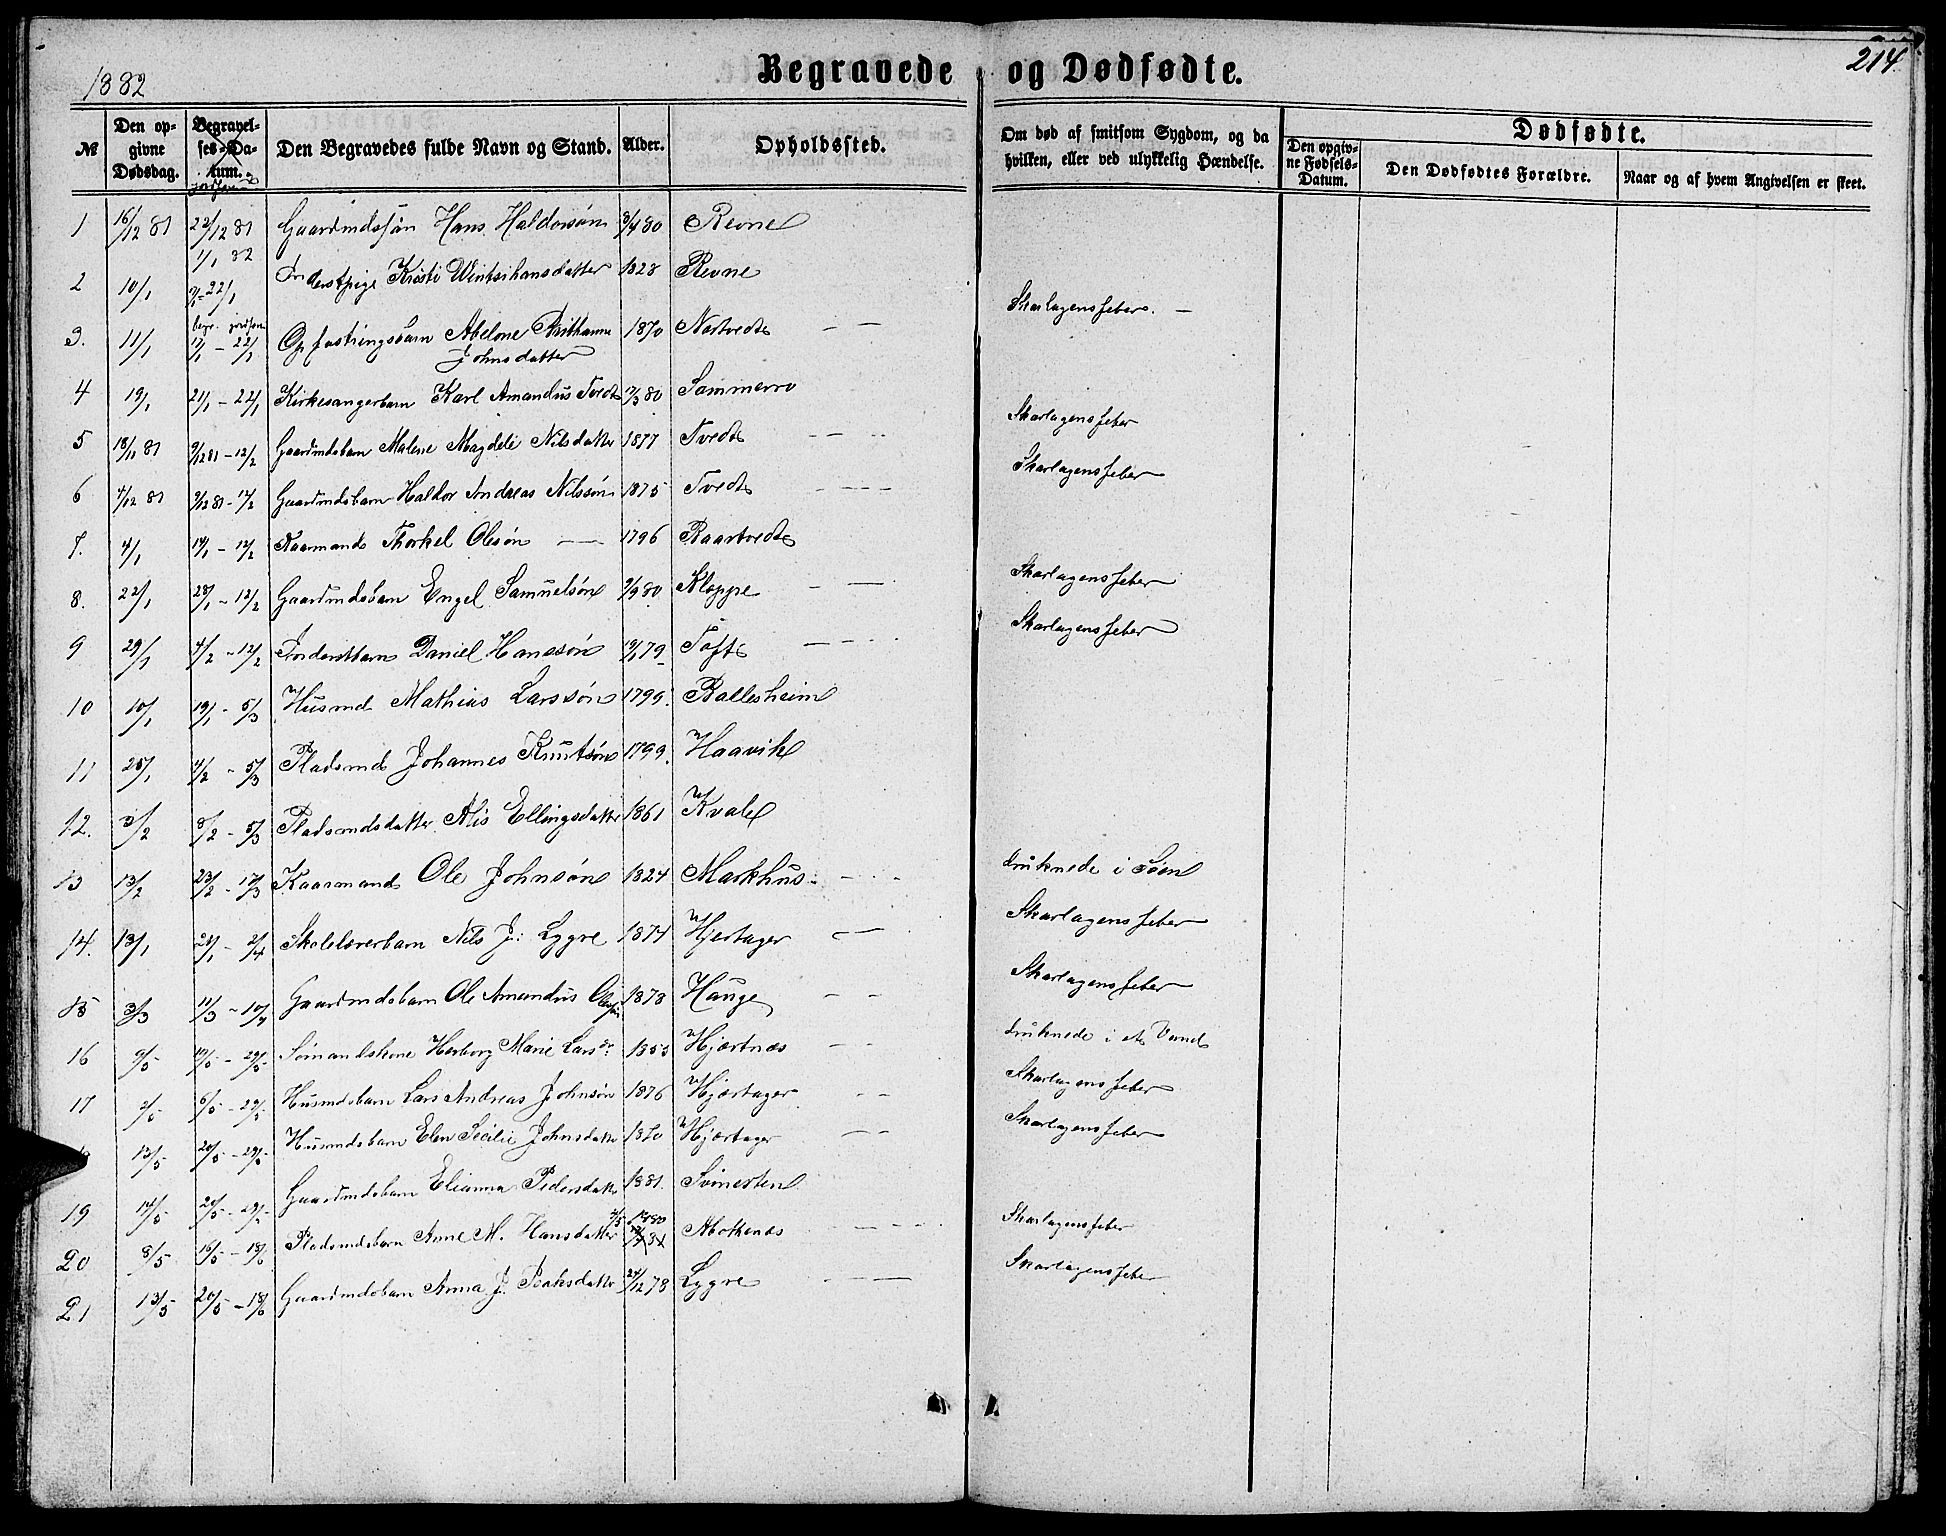 1882
Begravede og Dødfødte.
214
№
Den opgivne Dødsdag.
Begravelses-Datum.
Den Begravedes fulde Navn og Stand.
Alder.
Opholdssted.
Om død af smitsom Sygdom, og da hvilken, eller ved ulykkelig Hændelse.
Dødfødte.
Den opgivne Fødsels-Datum.
Den Dødfødtes Forældre.
Naar og af hvem Angivelsen er skeet.
1 16/12 81 22/12 81 1/1 82 Gaardmdssøn Hans Haldorsøn 3/4 80 Revne
2 10/1 22/1 Inderstpige Kristi 1828 Revne
3. 11/1 17/1 - 22/1 Opfostringsbarn Abelone Johnsdatter 1870 Nortvedt — — Skarlagensfeber. —
4 19/1 21/1 - 22/1 Kirkesangerbarn Karl Amandus Tvedt 17/3 80 Sommerro
5 18/11 81 9/12 81 - 12/2 Gaardmdsbarn Malene Magdele Nilsdatter 1877 Tvedt — — Skarlagensfeber
6 4/12 81 9/12 81 - 12/2 Gaardmdsbarn Haldor Andreas Nilssøn 1875 Tvedt — — Skarlagensfeber
7. 4/1 14/1 - 12/2 Kaarmand Thorkel Olesøn — 1796 Baartvedt
8. 22/1 28/1 - 12/2 Gaardmdsbarn Engel Samuelsøn 9/9 80 Kloppe — — Skarlagensfeber
9 29/1 4/2 - 12/2 Inderstbarn Daniel Hanssøn 79 Toft — — Skarlagensfeber
10 10/1 19/1 - 5/3 Husmd Mathias Larssøn 1799. Ballesheim
11 25/1 4/2 - 5/3 Pladsmd Johannes Knutsøn 1799. Haavik
12. 3/2 8/2 - 5/3 Pladsmdsdatter Alis Ellingsdatter 1861 Kvale
13 13/2 23/2 - 17/3 Kaarmand Ole Johnsøn 1824 Markhus — druknede i Søen
14. 13/1 21/1 - 2/4 Skolelærerbarn Nils J: Lygre 1874 Hjertager — Skarlagensfeber
15 3/3 11/3 - 10/4 Gaardmdsbarn Ole Amandus Olessøn 1878 Hauge — — Skarlagensfeber
16 9/5 19/5 - 29/5 Sømandskone Herborg Marie Larsdr 1853 Hjærtnæs — druknede i et Vand
17 2/5 6/5 - 29/5 Husmdsbarn Lars Andreas Johnsøn 1876 Hjærtager — — Skarlagensfeber
13/5 20/5 - 29/5 Husmdsbarn Elen Secilie Johnsdatter 1870 Hjærtager — — Skarlagensfeber
19 14/5 20/5 - 29/5 Gaardmdsbarn Elianna Pedersdatter 1881. Svinesten
20 8/5 16/5 - 18/6 Pladsmdsbarn Anne M. Hansdatter 1880 — Skarlagensfeber
21 13/5 20/5 - 18/6 Gaardmdsbarn Anna J. Isaksdatter 24/12 78 Lygre — — Skarlagensfeber